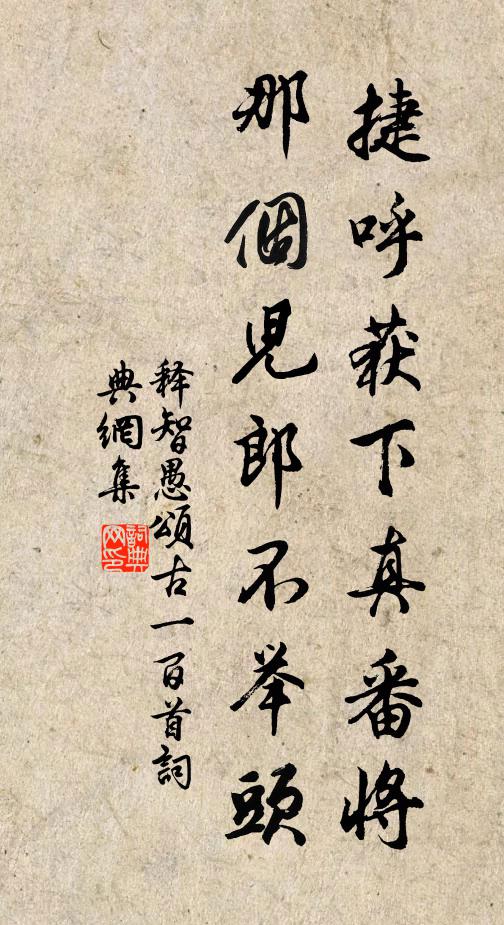 捷呼获下真番將
那個児郎不举頭
释智愚頌古一百首詞
典網集
詞典
网印